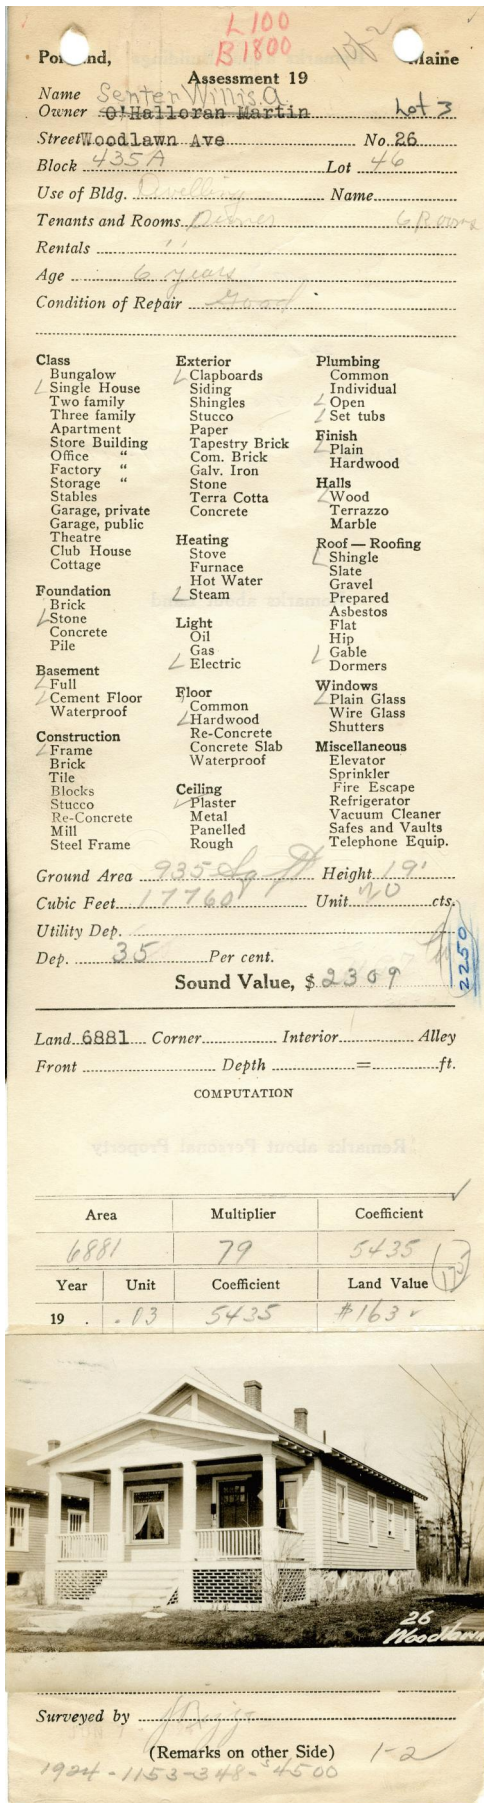 L 100
B 1800
1 of 2
Portland, Maine
Assessment 19
Name Senter Willis. A.
Owner O'Halloran Martin Lot 3
Street Woodlawn Ave No. 26
Block 435A Lot 46
Use of Bldg. Dwelling Name
Tenants and Rooms Owner 6 Rooms
Rentals "
Age 6 years
Condition of Repair Good
Class
Bungalow
Single House
Two family
Three family
Apartment
Store Building
Office "
Factory "
Storage "
Stables
Garage, private
Garage, public
Theatre
Club House
Cottage
Foundation
Brick
Stone
Concrete
Pile
Basement
Full
Cement Floor
Waterproof
Construction
Frame
Brick
Tile
Blocks
Stucco
Re-Concrete
Mill
Steel Frame
Exterior
Clapboards
Siding
Shingles
Stucco
Paper
Tapestry Brick
Com. Brick
Galv. Iron
Stone
Terra Cotta
Concrete
Heating
Stove
Furnace
Hot Water
Steam
Light
Oil
Gas
Electric
Floor
Common
Hardwood
Re-Concrete
Concrete Slab
Waterproof
Ceiling
Plaster
Metal
Panelled
Rough
Plumbing
Common
Individual
Open
Set tubs
Finish
Plain
Hardwood
Halls
Wood
Terrazzo
Marble
Roof — Roofing
Shingle
Slate
Gravel
Prepared
Asbestos
Flat
Hip
Gable
Dormers
Windows
Plain Glass
Wire Glass
Shutters
Miscellaneous
Elevator
Sprinkler
Fire Escape
Refrigerator
Vacuum Cleaner
Safes and Vaults
Telephone Equip.
Ground Area 935 Sq ft Height 19'
Cubic Feet 17760 Unit 20 cts.
Utility Dep.
Dep. 35 Per cent.
2250
Sound Value, $ 2309
Land 6881 Corner Interior Alley
Front Depth = ft.
COMPUTATION
Area Multiplier Coefficient
6881 79 5435
Year Unit Coefficient Land Value
19 . .03 5435 $163
26
Woodlawn
Surveyed by
(Remarks on other Side) 1-2
1924-1153-348-$4500